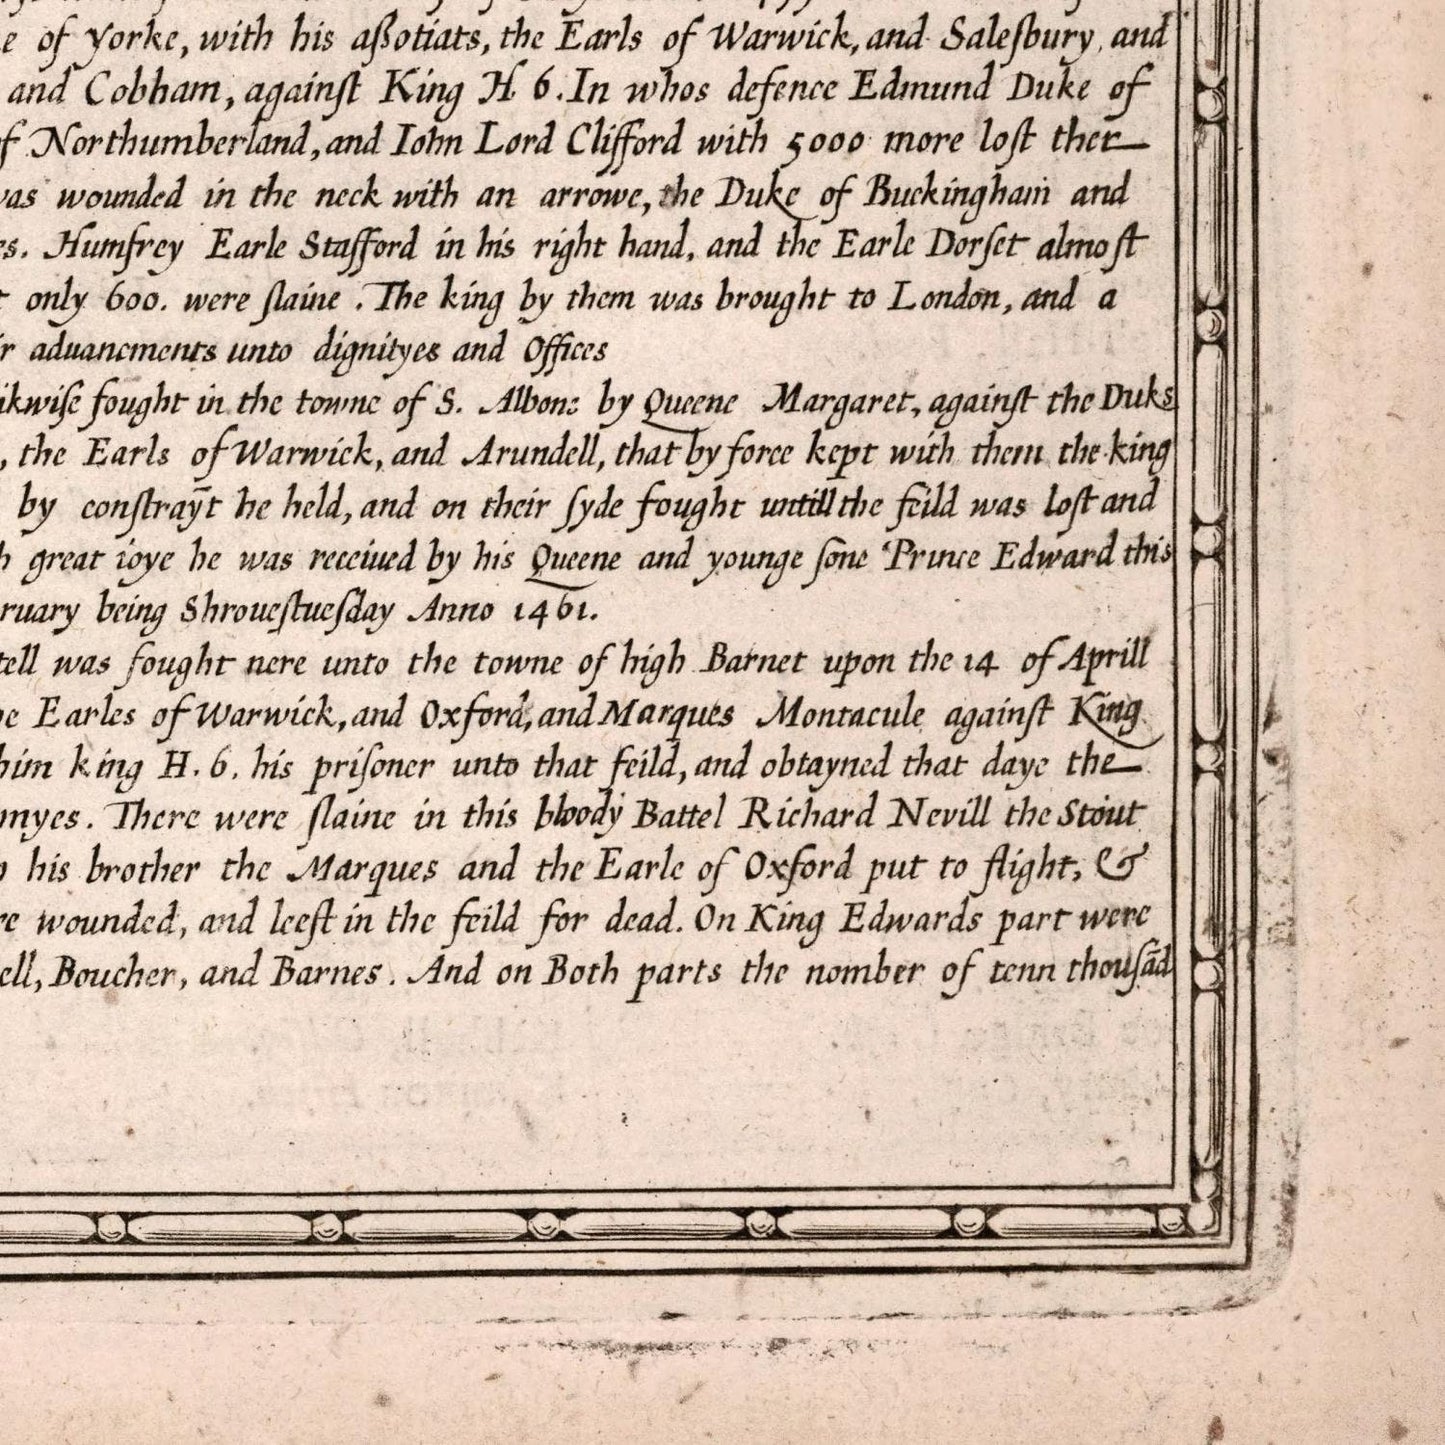 of Yorke, with his aßotiats, the Earls of Warwick, and Saleſbury, and
and Cobham, againſt King H 6. In whos defence Edmund Duke of
Northumberland, and Iohn Lord Clifford with 5000 more loſt ther
was wounded in the neck with an arrowe, the Duke of Buckingham and
Humfrey Earle Stafford in his right hand, and the Earle Dorſet almoſt
only 600. were ſlaine. The king by them was brought to London, and a
aduancments unto dignityes and Offices
fought in the towne of S. Albons by Queene Margaret, againſt the Duks
, the Earls of Warwick, and Arundell, that by force kept with them the king
by conſtraȳt he held, and on their ſyde fought untill the feild was loſt and
great ioye he was receiued by his Queene and younge ſone Prince Edward this
being Shroueſtueſday Anno 1461.
was fought nere unto the towne of high Barnet upon the 14 of Aprill
Earles of Warwick, and Oxford, and Marques Montacule againſt King
him king H. 6. his priſoner unto that feild, and obtayned that daye the
There were ſlaine in this bloody Battel Richard Nevill the Stout
his brother the Marques and the Earle of Oxford put to flight, &
wounded, and leeſt in the feild for dead. On King Edwards part were
Boucher, and Barnes. And on Both parts the nomber of tenn thouſād